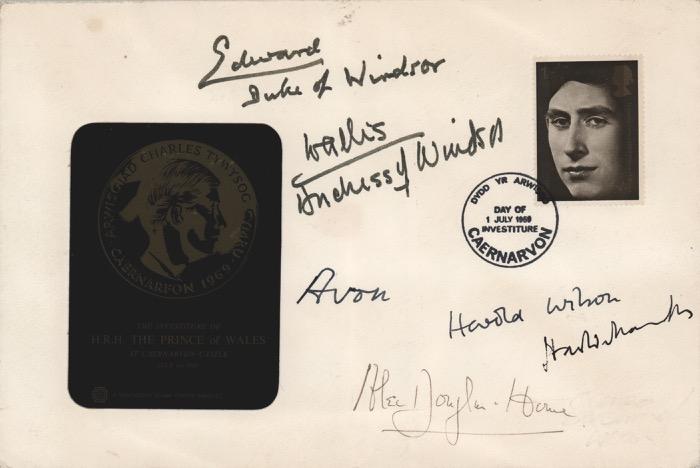 Edward
Duke of Windsor
Wallis
Duchess of Windsor
DYDD YR
DAY OF
1 JULY 1969
INVESTITURE
CAERNARVON
ARWISGIAD CHARLES TYWYSOG CYMRU
CAERNARFON 1969
THE INVESTITURE OF
H.R.H. THE PRINCE of WALES
AT CAERNARVON CASTLE
JULY 1st 1969
Avon
Harold Wilson
Alec Douglas-Home